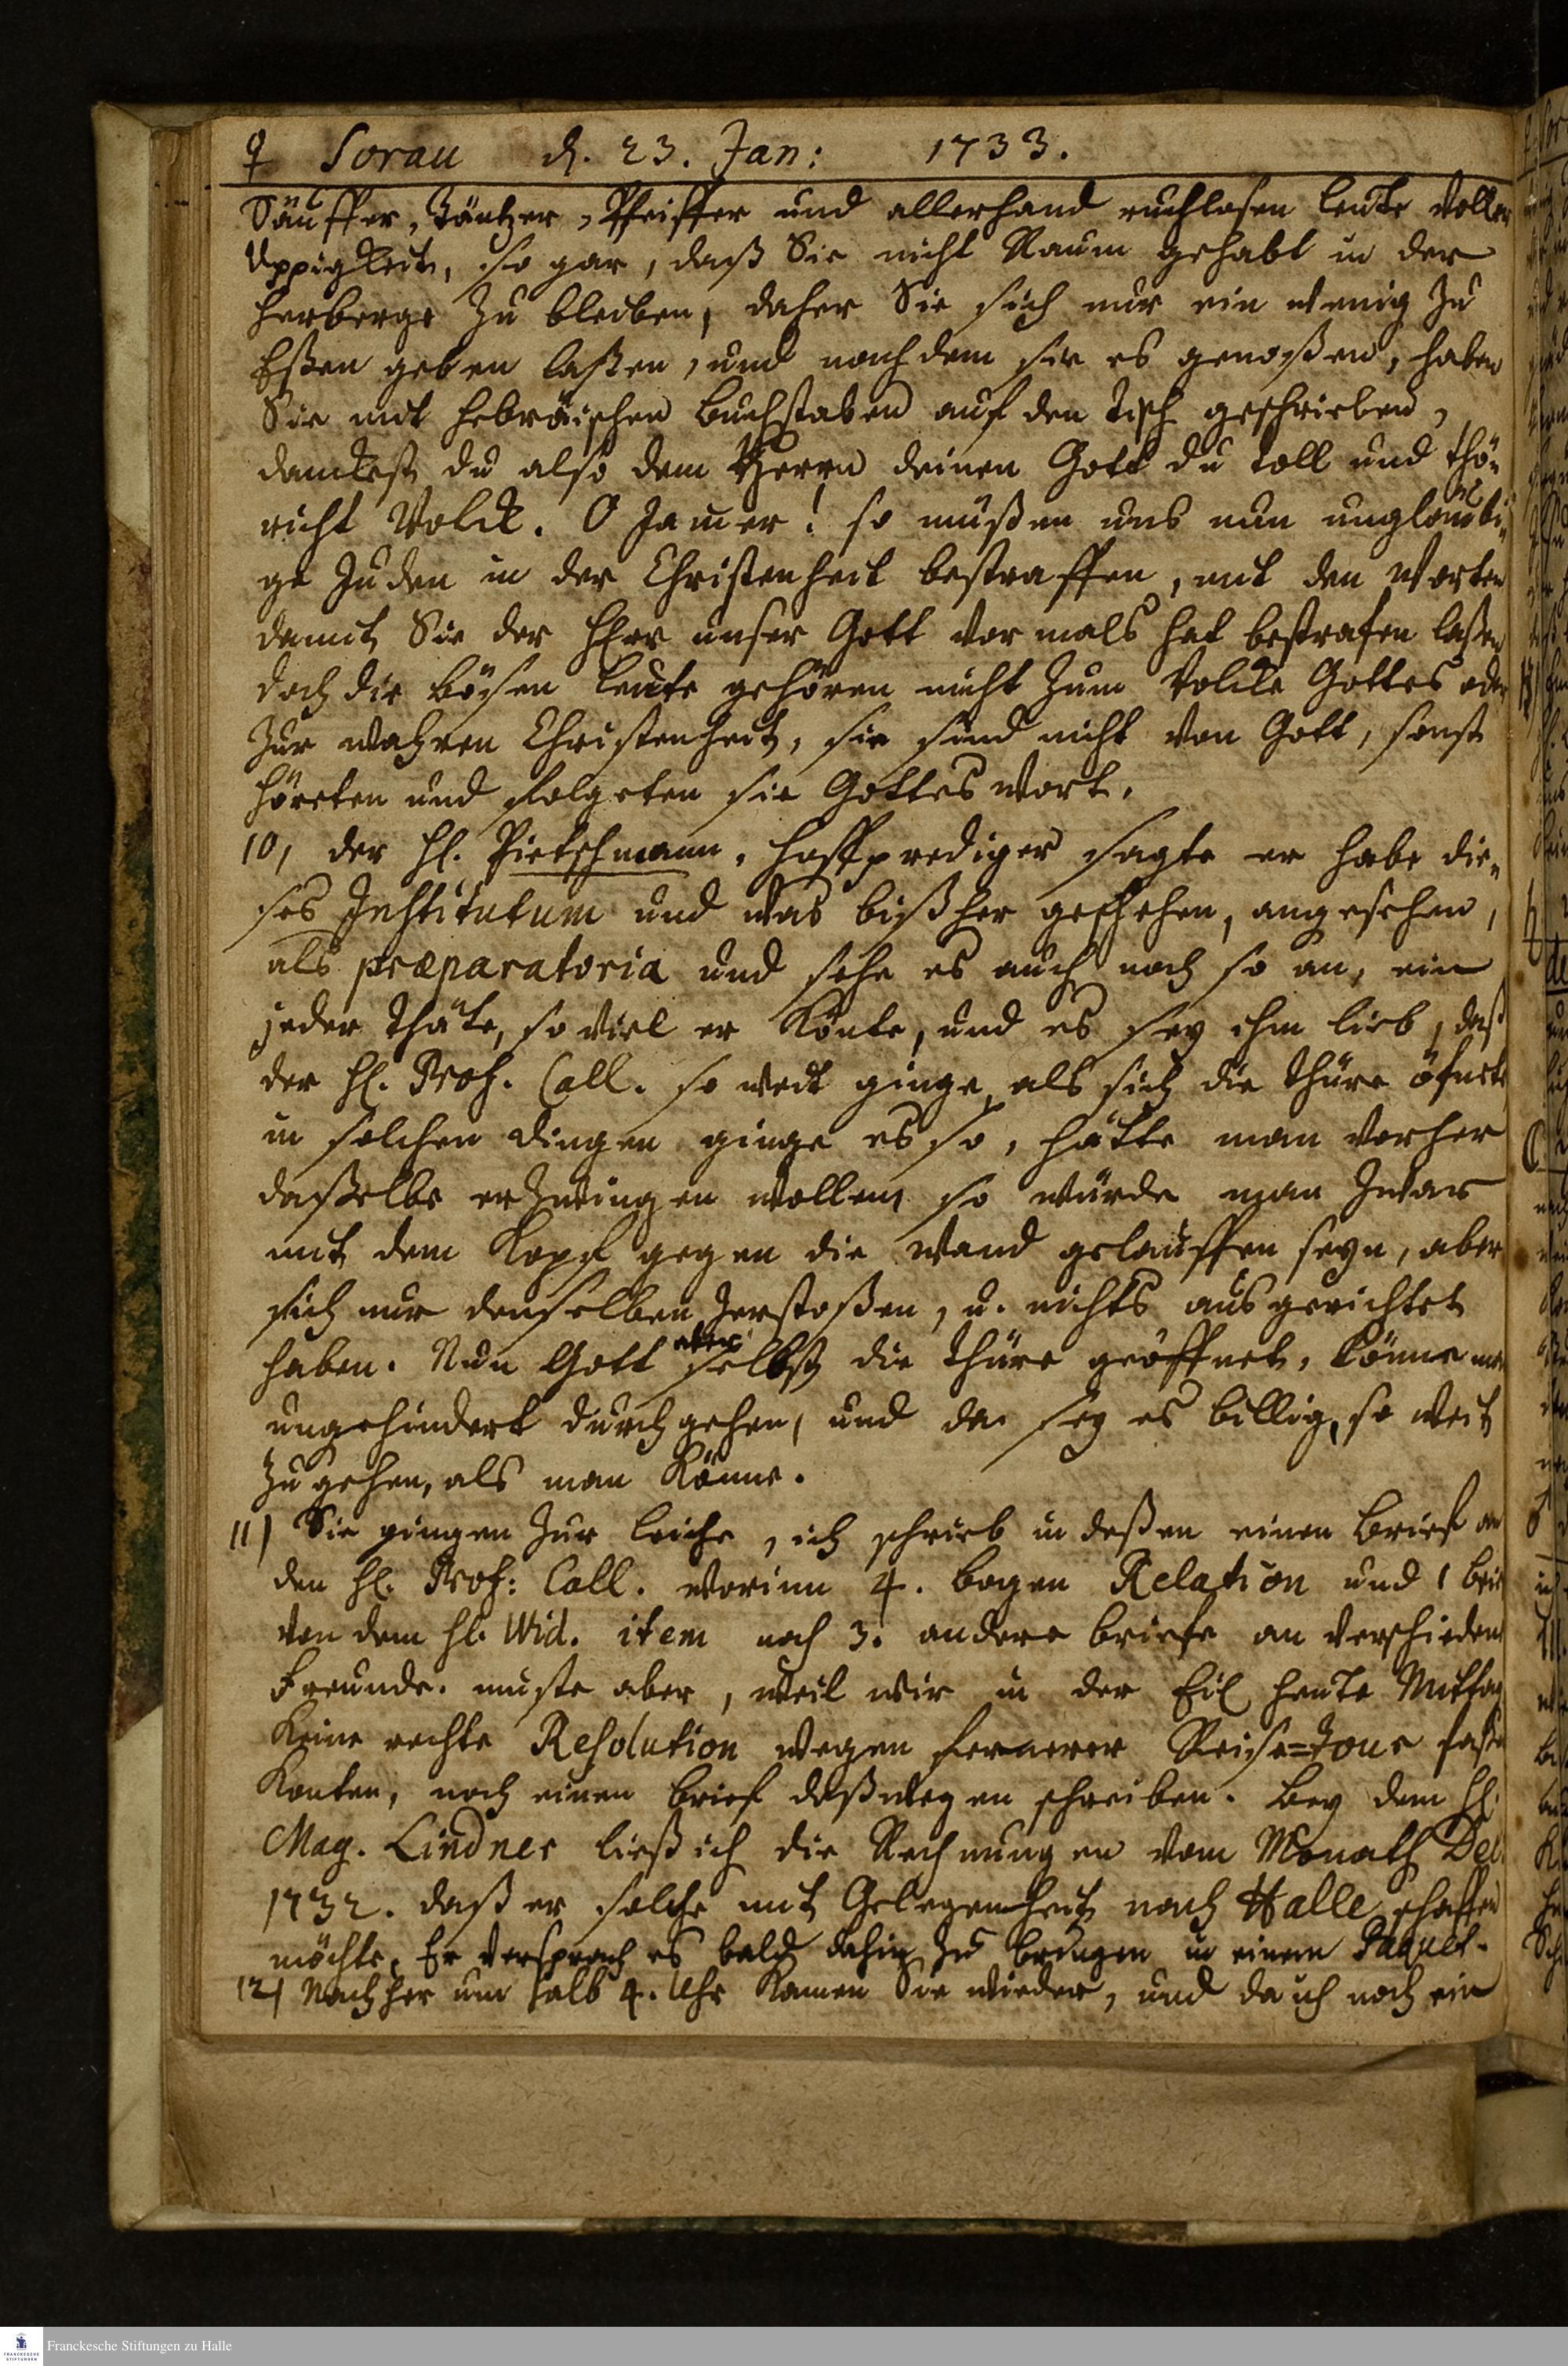 ♀ Sorau d. 23. Jan: 1733.
Säuffer, Täntzer, Pfeiffer und allerhand ruchlosen Leute voller
Uppigkeit, so gar, daß Sie nicht Raum gehabt in der
Herberge zu bleiben, daher Sie sich nur ein wenig zu
Eßen geben laßen, und nachdem sie es genoßen, haben
Sie mit hebräischen Buchstaben auf den Tisch geschrieben,
danckest du also dem Herrn deinen Gott du toll und thö-
richt Volck. O Jamer! so müßen uns nun ungläubi-
ge Juden in der Christenheit bestraffen, mit den Worten
damit Sie der Herr unser Gott vormals hat bestrafen laßen
doch die bösen Leute gehören nicht zum Volcke Gottes oder
zur wahren Christenheit, sie sind nicht von Gott, sonst
höreten und folgeten sie Gottes Wort.
10, der H. Pietschmann, Hoffprediger sagte er habe die-
ses Institutum und was bißher geschehen, angesehen,
als præparatoria und sehe es auch noch so an, ein
jeder thäte, so viel er könte, und es sey ihm lieb, daß
der H. Prof. Call. so weit ginge, als sich die Thüre öfnete
in solchen Dingen ginge es so, hätte man vorher
daßelbe erzwingen wollen, so würde man zwar
mit dem Kopf gegen die Wand gelauffen seyn, aber
sich nur denselben zerstoßen, u. nichts ausgerichtet
haben. Nun Gott aber selbst die Thüre geöffnet, könne man
ungehindert durchgehen, und da sey es billig, so weit
zu gehen, als man könne.
11) Sie gingen zur Leiche, ich schrieb indeßen einen Brief an
den H. Prof: Call. worinn 4. Bogen Relation und 1 Brief
von dem H. Wid. item noch 3. andere Briefe an verschiedene
Freunde. muste aber, weil wir in der Eil heute Mittag
keine rechte Resolution wegen fernerer Reise=Tour faßen
konten, noch einen Brief deßwegen schreiben. Bey dem H.
Mag. Lindner ließ ich die Rechnungen vom Monath Dec.
1732. daß er solche mit Gelegenheit nach Halle schaffen
möchte, Er versprach es bald dahin zu bringen in einem Paquet.
12) Nachher um halb 4. Uhr kamen Sie wieder, und da ich noch ein
Franckesche Stiftungen zu Halle